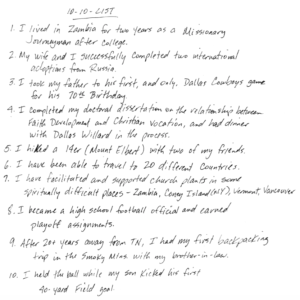 10-10-LIST
1. I lived in Zambia for two years as a Missionary
Journeyman after college.
2. My wife and I successfully completed two international
adoptions from Russia.
3. I took my father to his first, and only, Dallas Cowboys game
for his 70th Birthday.
4. I completed my doctoral dissertation on the relationship between
Faith Development and Christian Vocation, and had dinner
with Dallas Willard in the process.
5. I hiked a 14er (Mount Elbert) with two of my friends.
6. I have been able to travel to 20 different countries.
7. I have facilitated and supported church plants in some
spiritually difficult places - Zambia, Coney Island (NY), Vermont, Vancouver
8. I became a high school football official and earned
playoff assignments.
9. After 20+ years away from TN, I had my first backpacking
trip in the Smoky Mtns. with my brother-in-law.
10. I held the ball while my son kicked his first
40-yard Field goal.